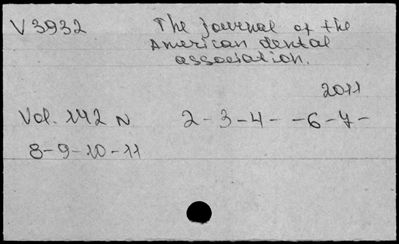 V 3932
The journal of the
American dental
association.
2011
Vol. 142 N 2-3-4- -6-7-
8-9-10-11